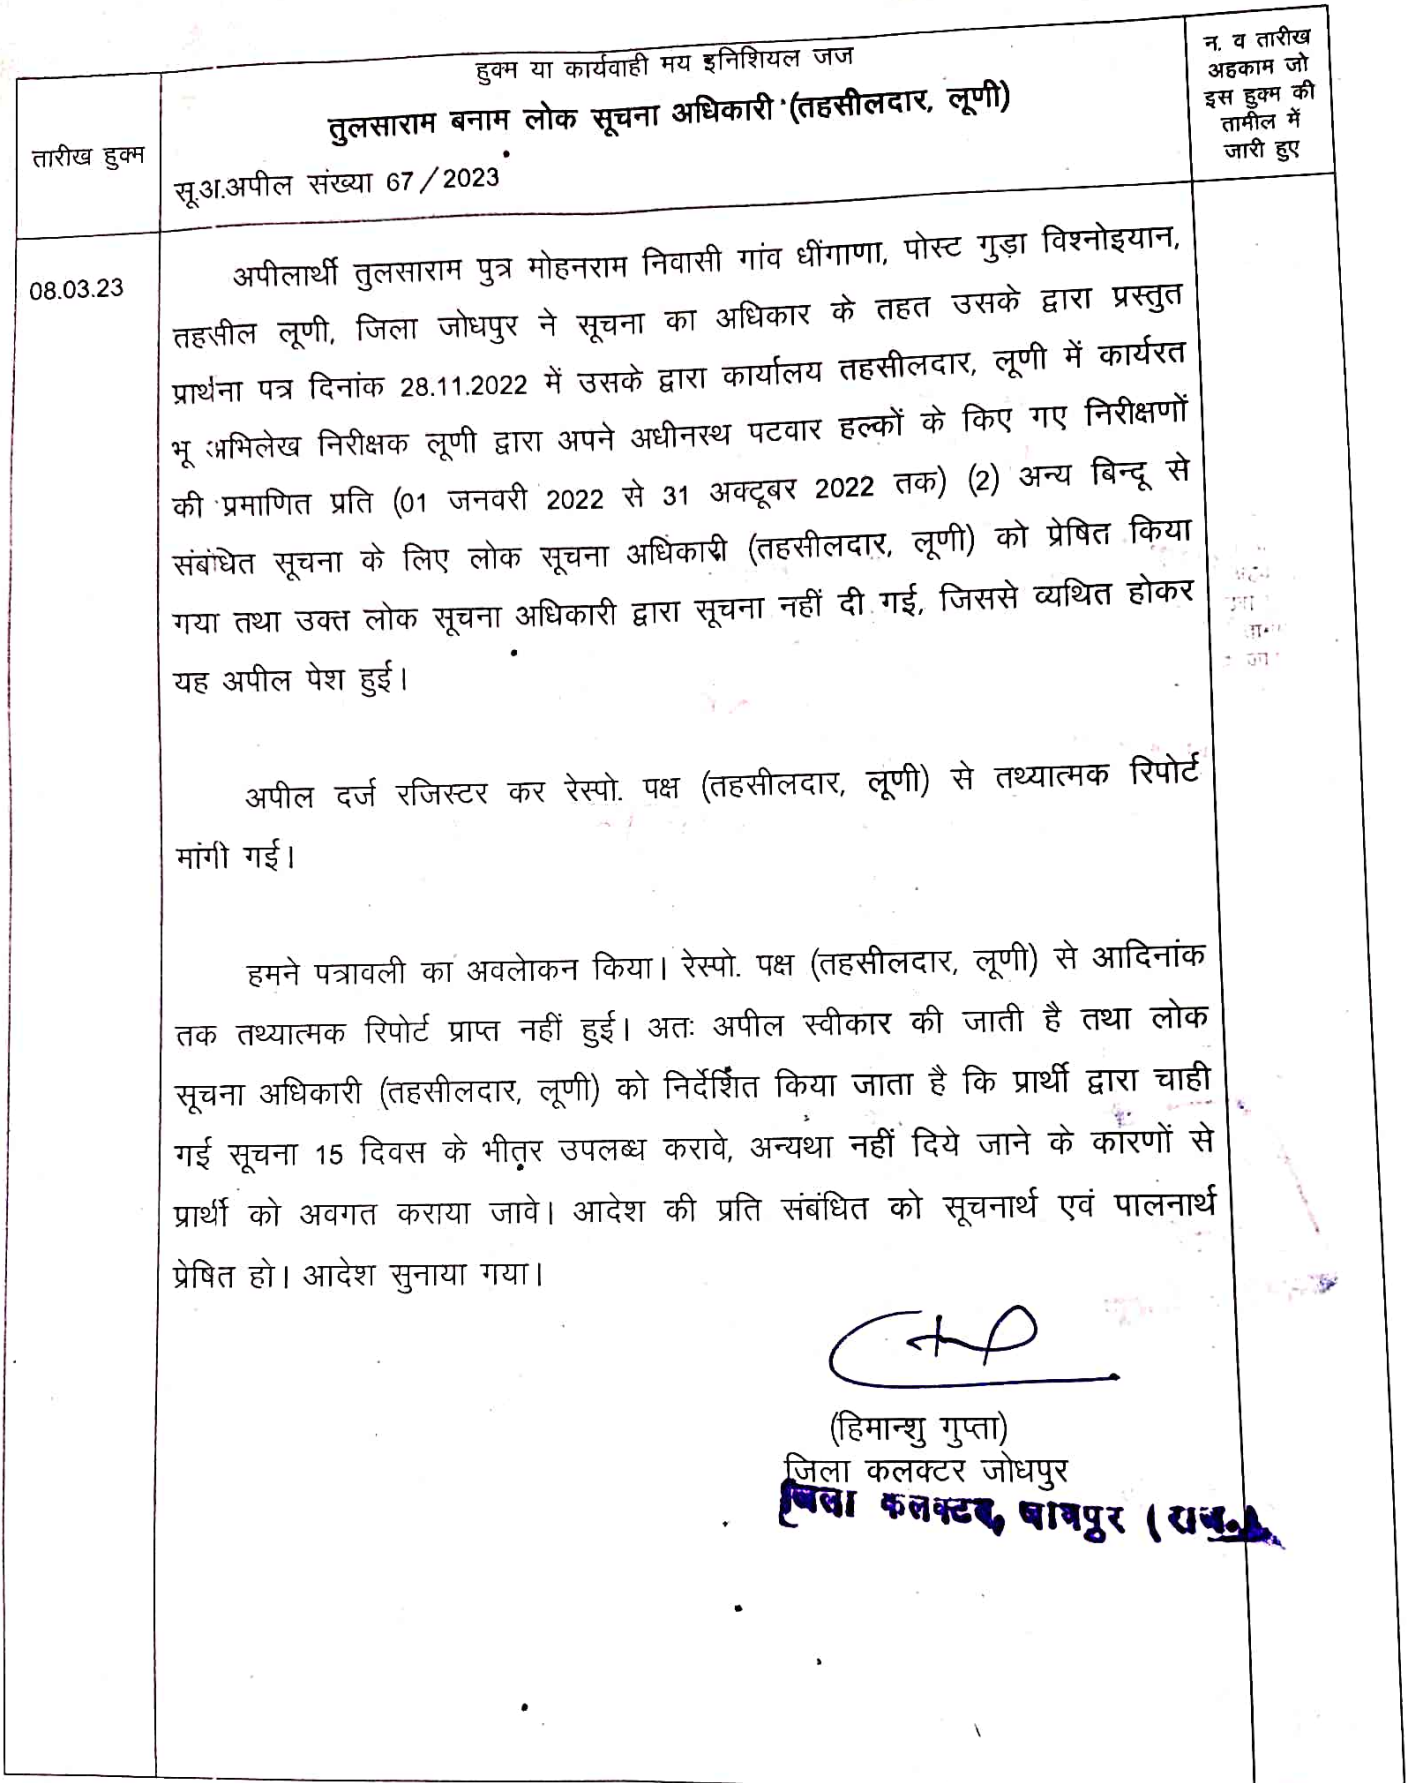 हुक्म या कार्यवाही मय इनिशियल जज
तुलसाराम बनाम लोक सूचना अधिकारी (तहसीलदार, लूणी)
सू.अ.अपील संख्या 67/2023
तारीख हुक्म
न. व तारीख
अहकाम जो
इस हुक्म की
तामील में
जारी हुए
08.03.23
अपीलार्थी तुलसाराम पुत्र मोहनराम निवासी गांव धींगाणा, पोस्ट गुड़ा विश्नोइयान,
तहसील लूणी, जिला जोधपुर ने सूचना का अधिकार के तहत उसके द्वारा प्रस्तुत
प्रार्थना पत्र दिनांक 28.11.2022 में उसके द्वारा कार्यालय तहसीलदार, लूणी में कार्यरत
भू अभिलेख निरीक्षक लूणी द्वारा अपने अधीनस्थ पटवार हल्कों के किए गए निरीक्षणों
की प्रमाणित प्रति (01 जनवरी 2022 से 31 अक्टूबर 2022 तक) (2) अन्य बिन्दू से
संबंधित सूचना के लिए लोक सूचना अधिकारी (तहसीलदार, लूणी) को प्रेषित किया
गया तथा उक्त लोक सूचना अधिकारी द्वारा सूचना नहीं दी गई, जिससे व्यथित होकर
यह अपील पेश हुई।
अपील दर्ज रजिस्टर कर रेस्पो. पक्ष (तहसीलदार, लूणी) से तथ्यात्मक रिपोर्ट
मांगी गई।
हमने पत्रावली का अवलोकन किया। रेस्पो. पक्ष (तहसीलदार, लूणी) से आदिनांक
तक तथ्यात्मक रिपोर्ट प्राप्त नहीं हुई। अतः अपील स्वीकार की जाती है तथा लोक
सूचना अधिकारी (तहसीलदार, लूणी) को निर्देशित किया जाता है कि प्रार्थी द्वारा चाही
गई सूचना 15 दिवस के भीतर उपलब्ध करावे, अन्यथा नहीं दिये जाने के कारणों से
प्रार्थी को अवगत कराया जावे। आदेश की प्रति संबंधित को सूचनार्थ एवं पालनार्थ
प्रेषित हो। आदेश सुनाया गया।
(हिमान्शु गुप्ता)
जिला कलक्टर जोधपुर
जिला कलक्टर, जोधपुर (राज.)